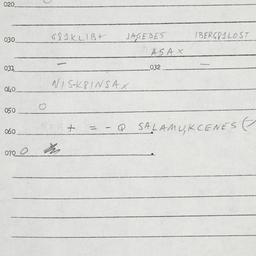 020
030 G81KLIB+ JAGEDES IBERG81LOST
ASAX
031 — 032 —
040 NISK8INSAX
050 O
060 + = - Q SALAMUKCENES (
070 O